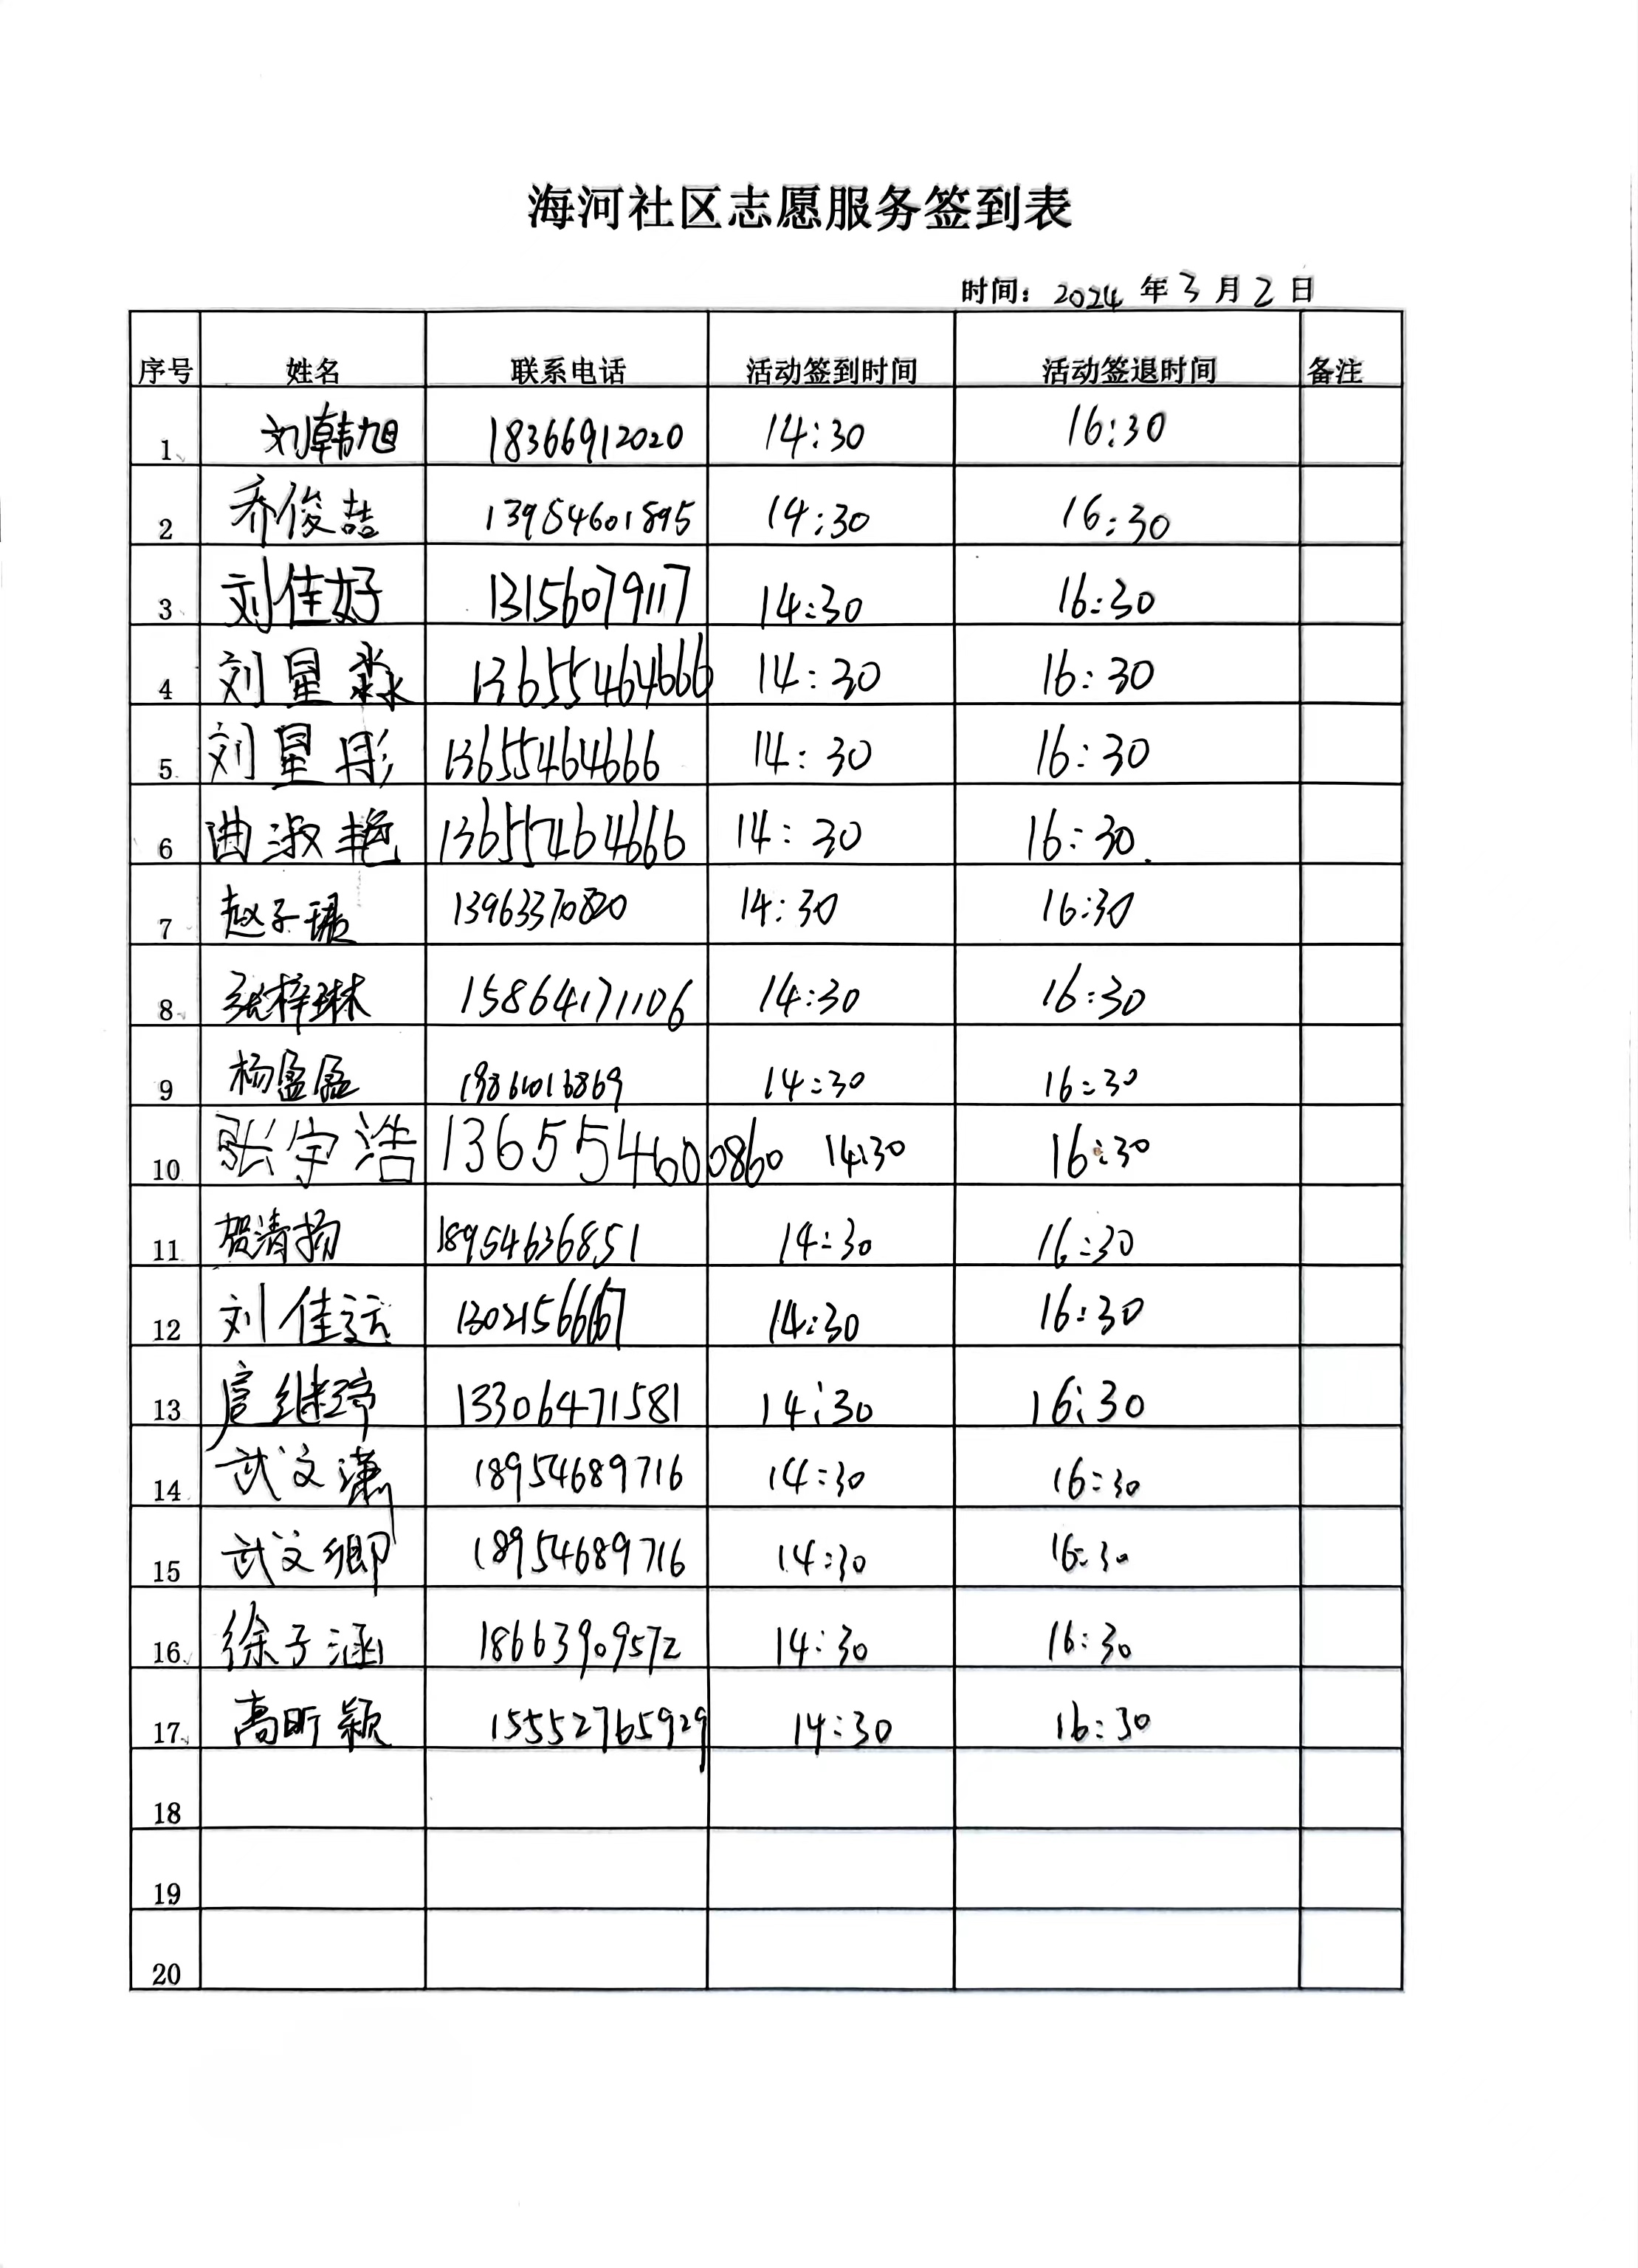 海河社区志愿服务签到表
时间：2024 年 3 月 2 日
序号 姓名 联系电话 活动签到时间 活动签退时间 备注
1 刘韩旭 18366912020 14:30 16:30
2 乔俊喆 13954601895 14:30 16:30
3 刘佳好 13156079117 14:30 16:30
4 刘星淼 13655464666 14:30 16:30
5 刘星彤 13655464666 14:30 16:30
6 曲淑艳 13655464666 14:30 16:30
7 赵子珺 13963370820 14:30 16:30
8 张梓琳 15864171106 14:30 16:30
9 杨盈盈 14:30 16:30
10 张宇浩 13655460860 14:30 16:30
11 贺清扬 18954636851 14:30 16:30
12 刘佳远 13021566667 14:30 16:30
13 扈继 13306471581 14:30 16:30
14 武文潇 18954689716 14:30 16:30
15 武文卿 18954689716 14:30 16:30
16 徐子涵 18663909572 14:30 16:30
17 高昕颖 15552765929 14:30 16:30
18
19
20